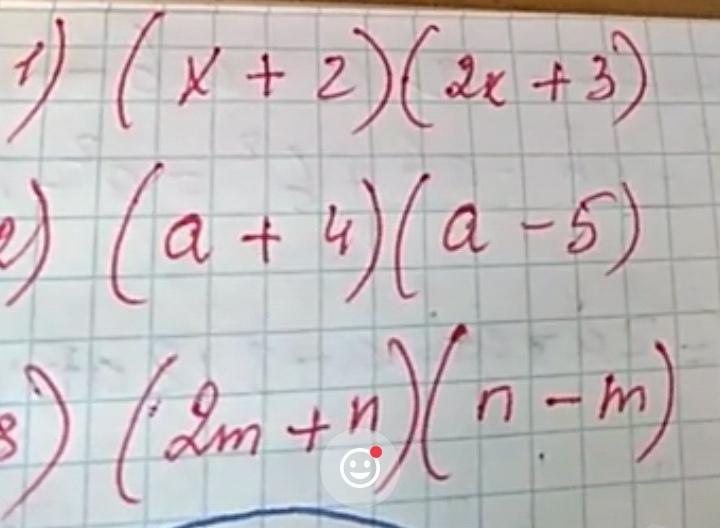 1) (x + 2)(2x + 3)
2) (a + 4)(a - 5)
3) (2m + n)(n - m)